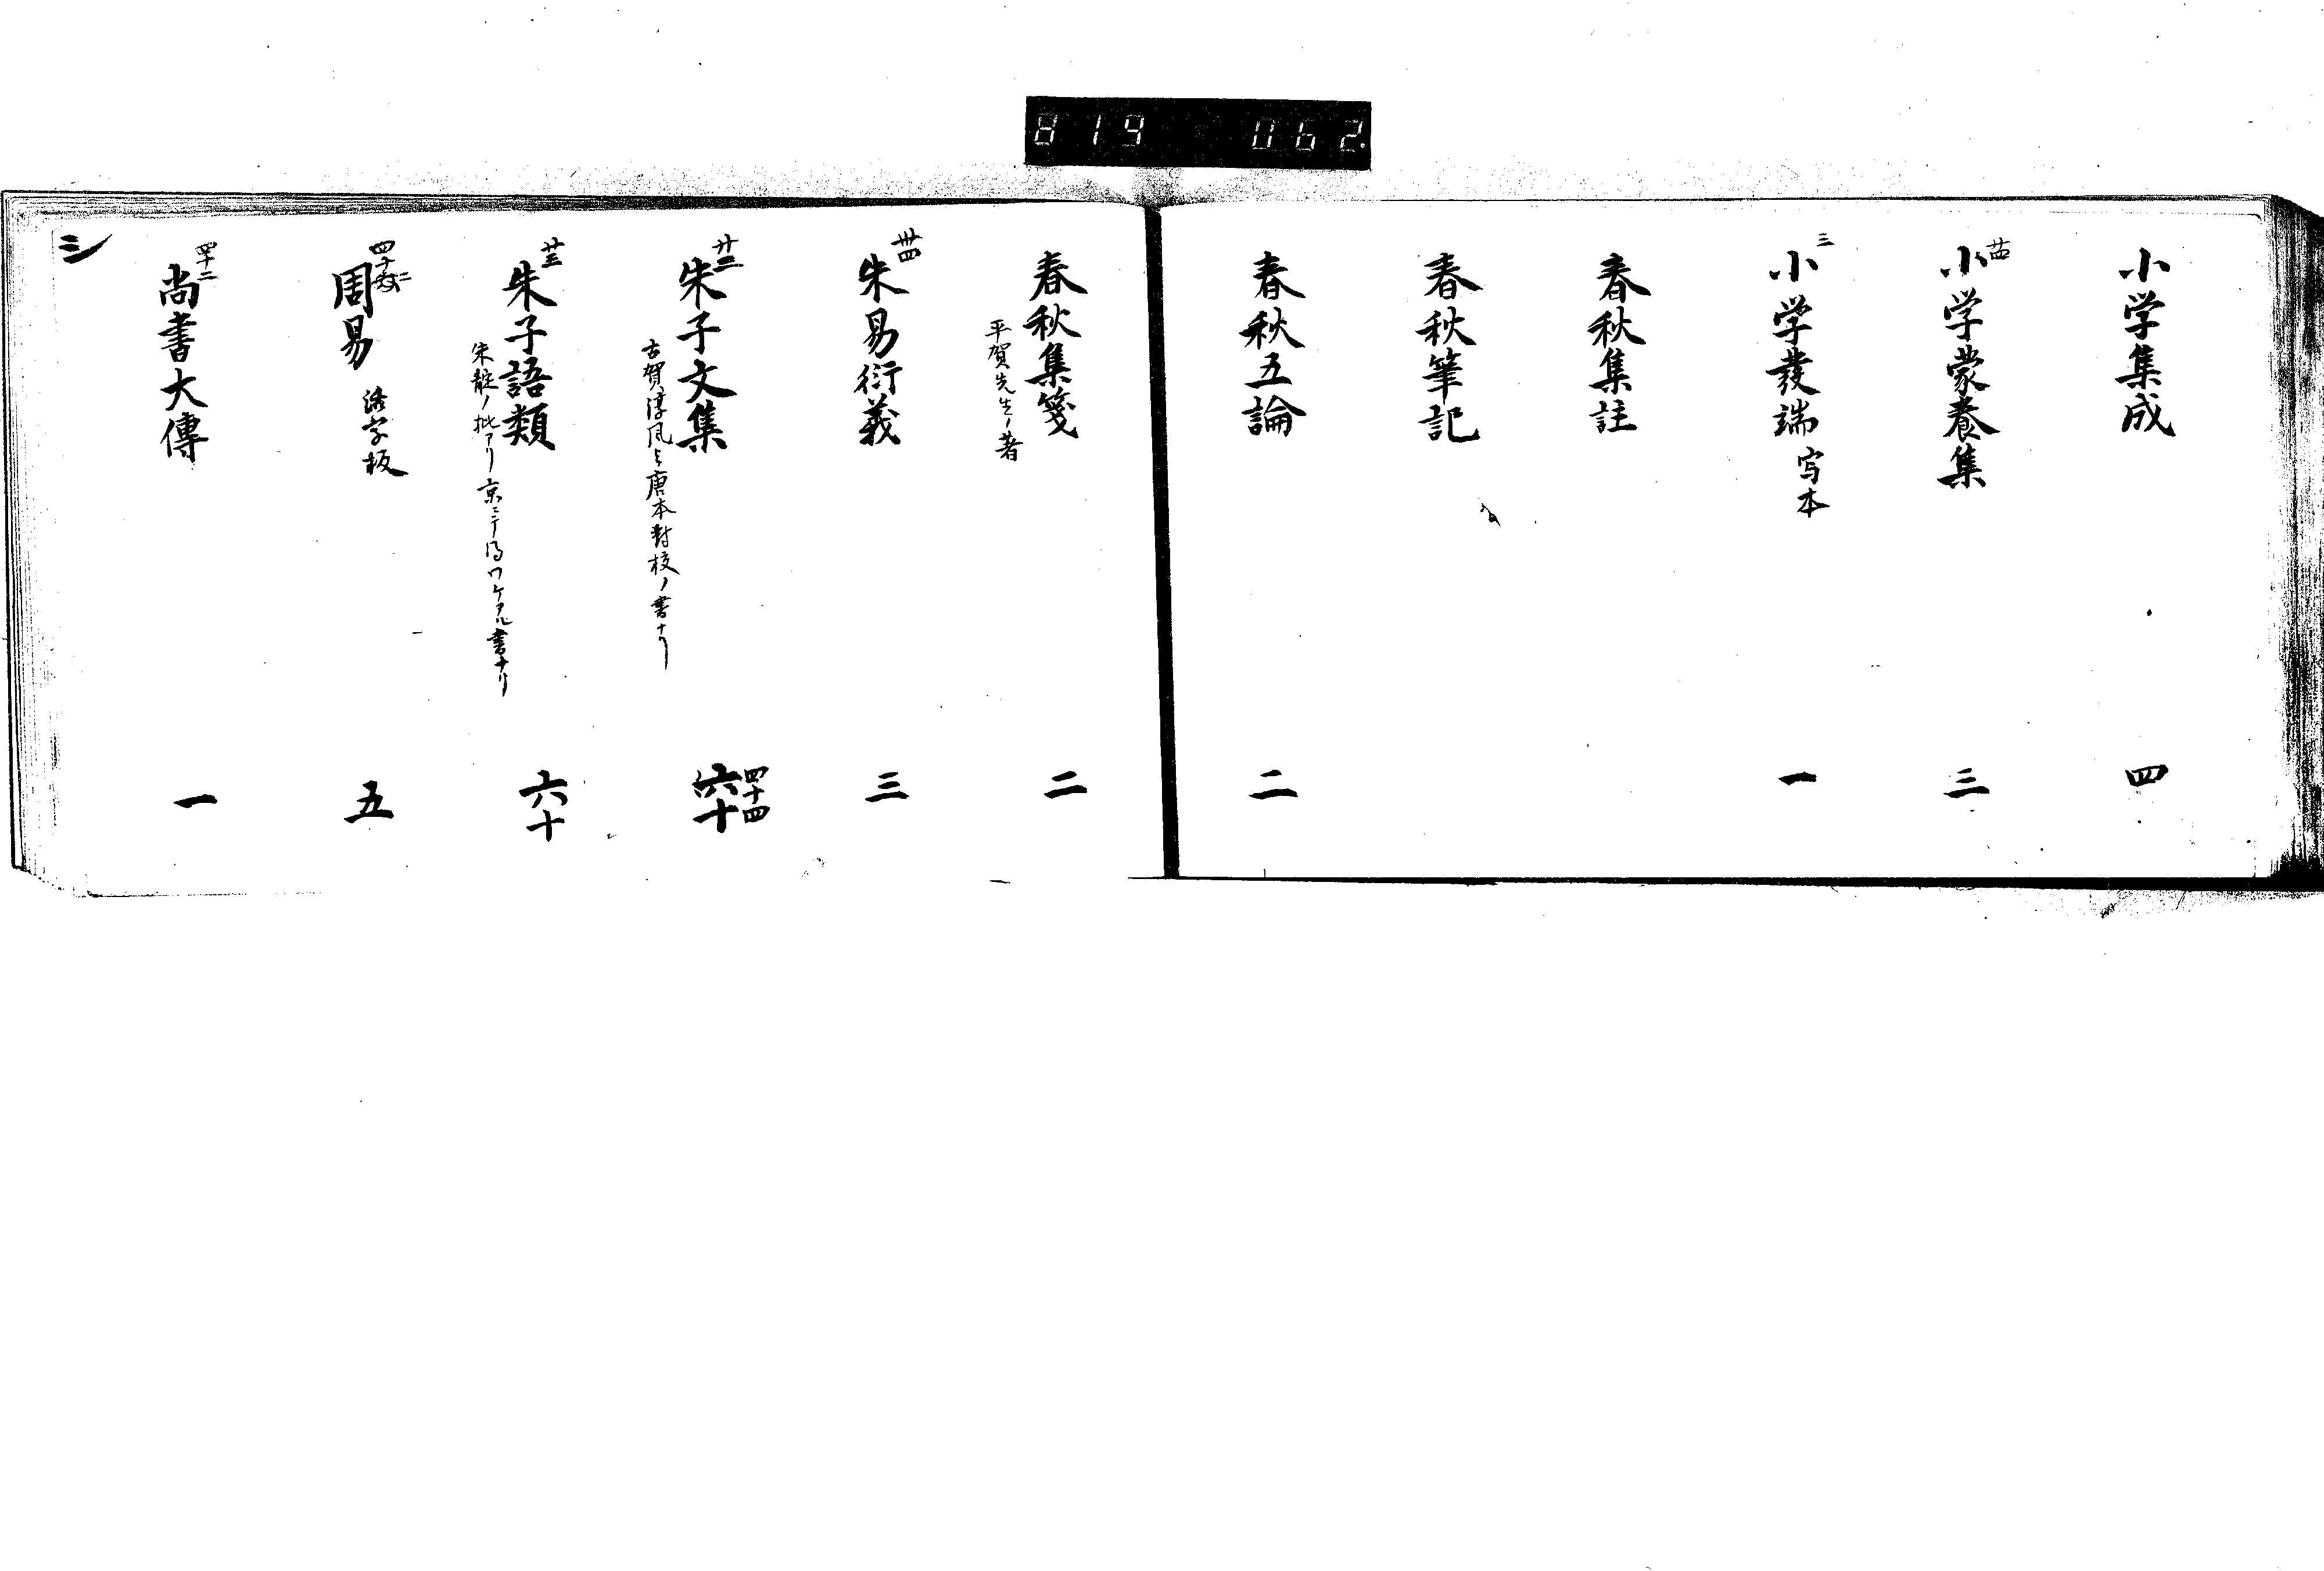 819 062
小学集成 四
廿四
小学蒙養集 三
三
小学發端 写本 一
春秋集註
春秋筆記
春秋五論 二
春秋集箋 二
平賀先生ノ著
卅四
朱易衍義 三
廿二
朱子文集 六十 四十四
古賀淳風ヨリ唐本對校ノ書ナリ
廿三
朱子語類 六十
朱 ノ批アリ 京ニテ得ワケアル書ナリ
周易 活字板 五
四十二
尚書大傳 一
シ